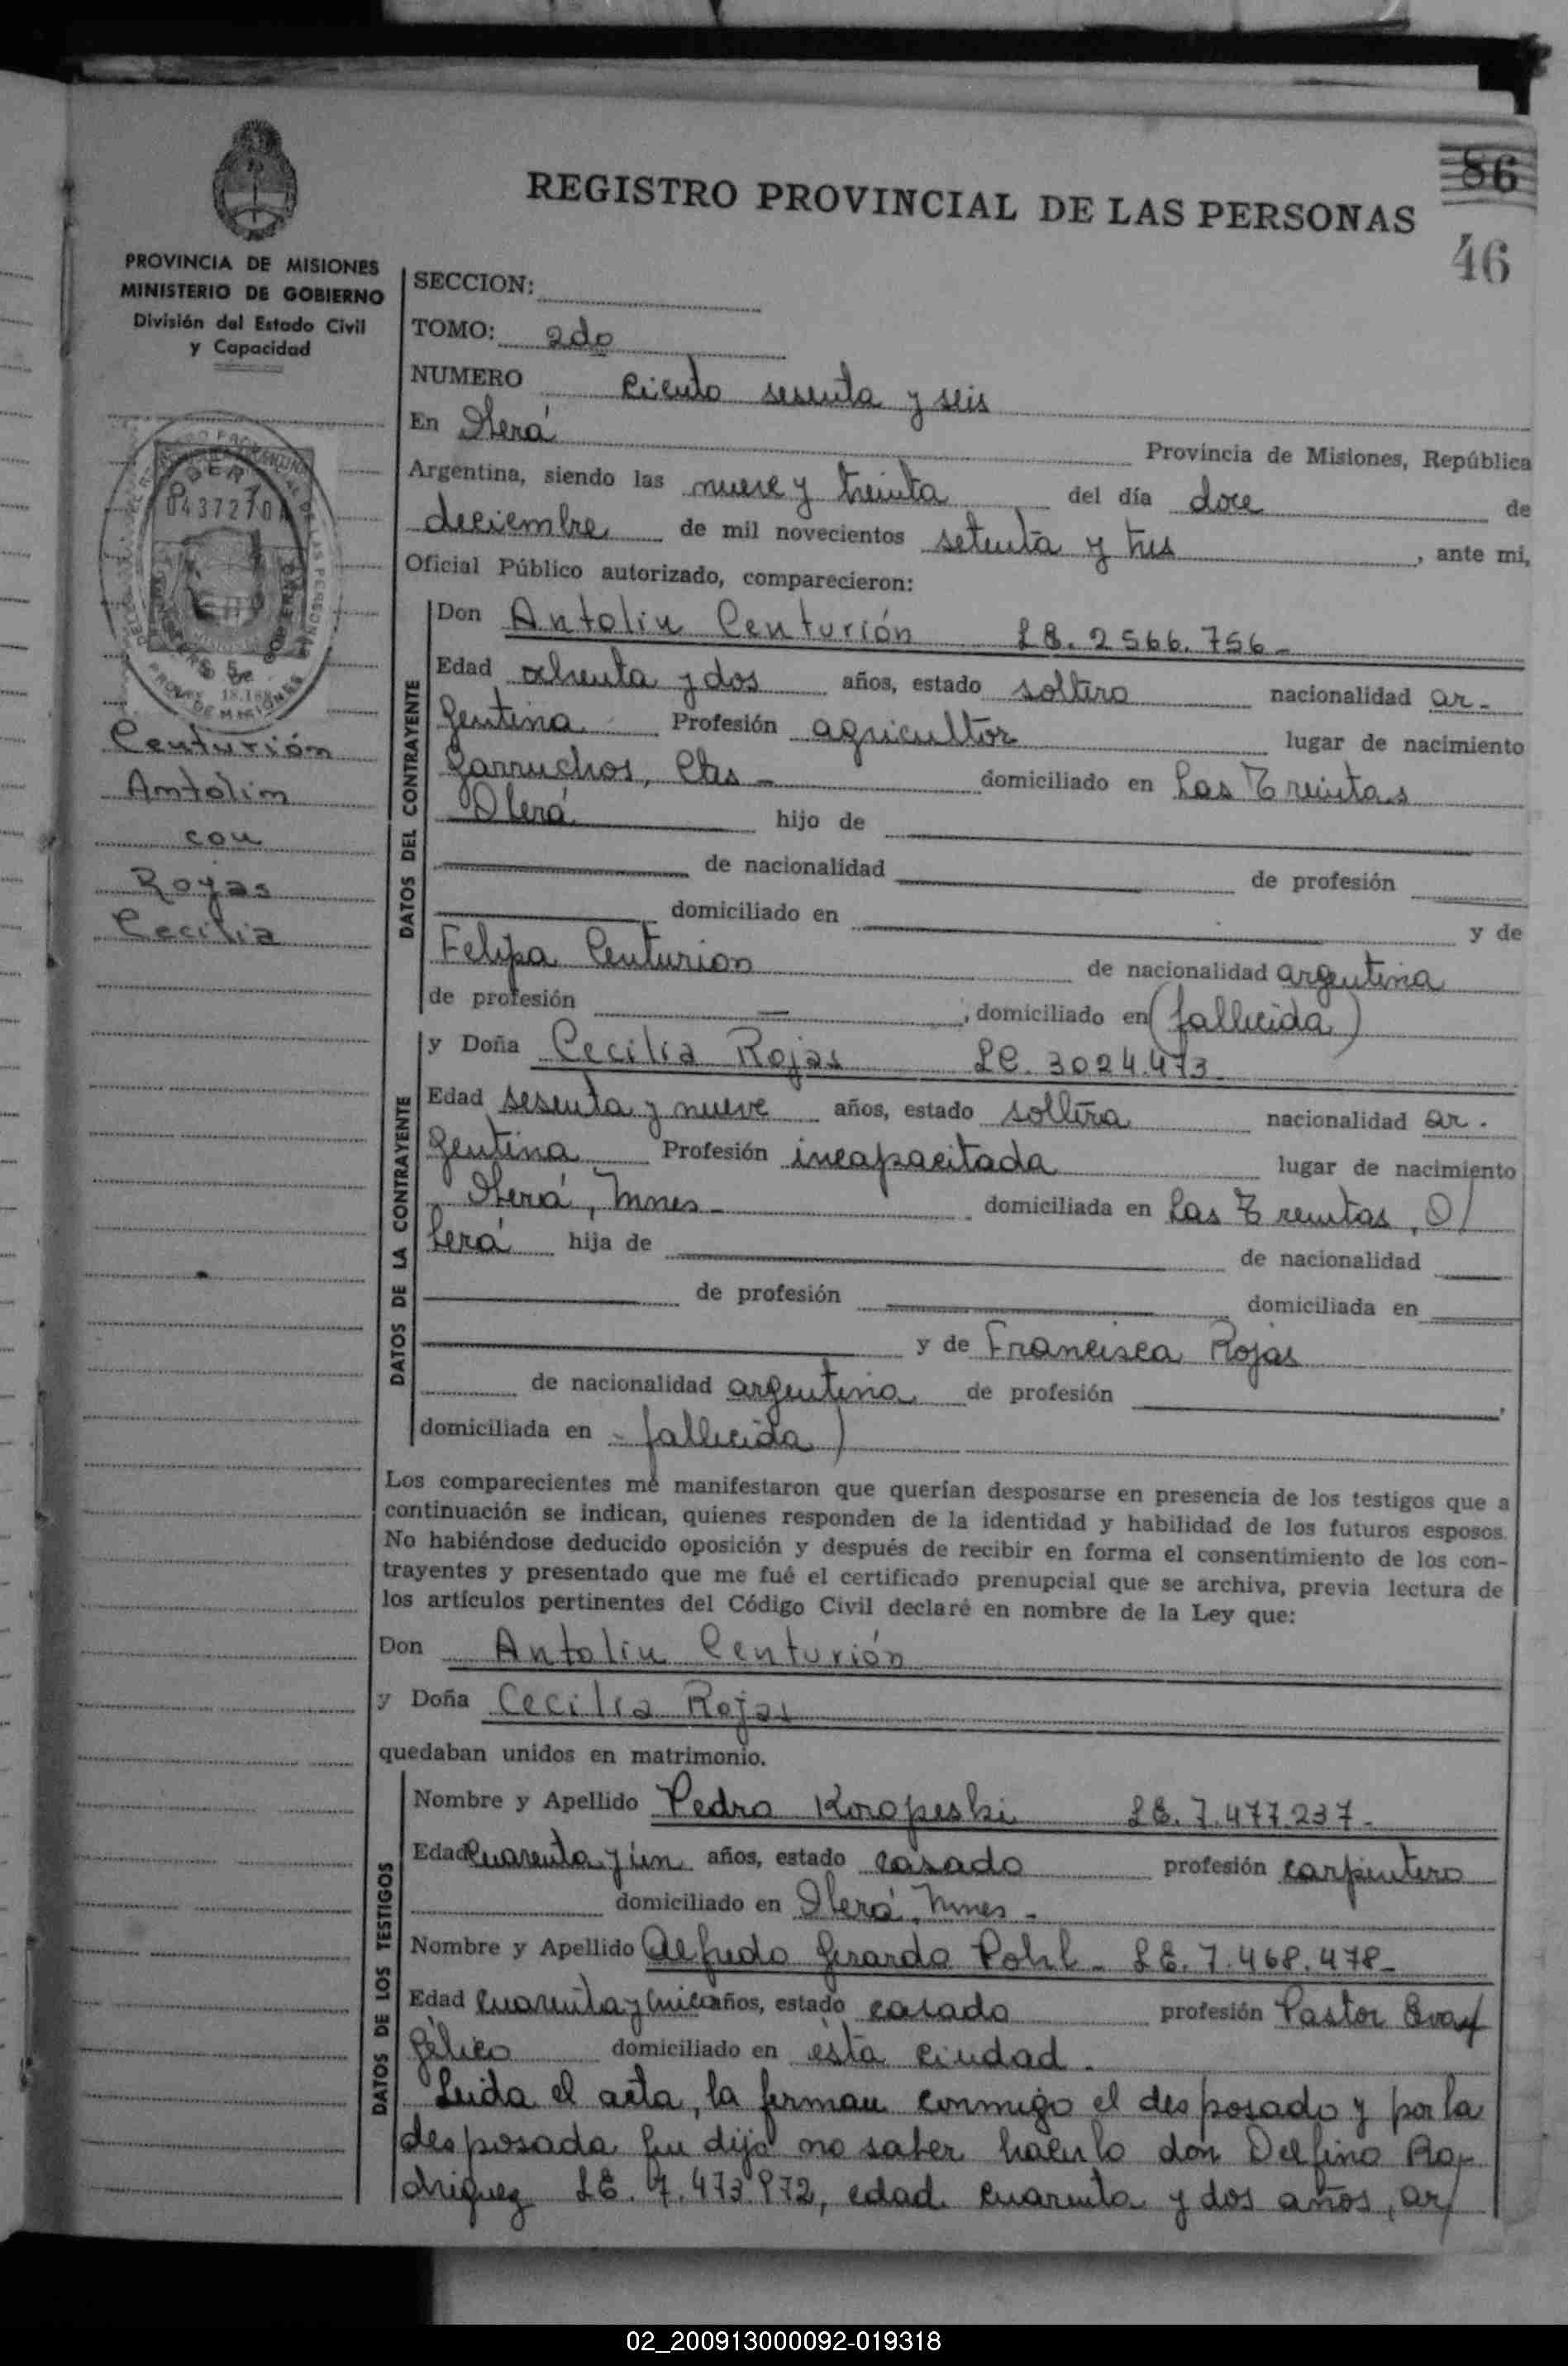 REGISTRO PROVINCIAL DE LAS PERSONAS
86
46
PROVINCIA DE MISIONES
MINISTERIO DE GOBIERNO
División del Estado Civil
y Capacidad
SECCION:
TOMO: 2do
NUMERO ciento sesenta y seis
En Oberá Provincia de Misiones, República
Argentina, siendo las nueve y treinta del día doce de
deciembre de mil novecientos setenta y tres, ante mi,
Oficial Público autorizado, comparecieron:
0437270
Centurión
Antolin
con
Rojas
Cecilia
DATOS DEL CONTRAYENTE
Don Antolin Centurión LE. 2566.756-
Edad ochenta y dos años, estado soltero nacionalidad ar-
gentina Profesión agricultor lugar de nacimiento
Garruchos, Ctes - domiciliado en Las Treintas
Oberá hijo de
de nacionalidad de profesión
domiciliado en y de
Felipa Centurion de nacionalidad argentina
de profesión — , domiciliado en (fallecida)
DATOS DE LA CONTRAYENTE
y Doña Cecilia Rojas LC. 3024.473
Edad sesenta y nueve años, estado soltera nacionalidad ar-
gentina Profesión incapacitada lugar de nacimiento
Oberá, Mnes - domiciliada en Las Treintas, O/
berá hija de de nacionalidad
de profesión domiciliada en
y de Francisca Rojas
de nacionalidad argentina de profesión ,
domiciliada en - fallecida)
Los comparecientes me manifestaron que querían desposarse en presencia de los testigos que a
continuación se indican, quienes responden de la identidad y habilidad de los futuros esposos.
No habiéndose deducido oposición y después de recibir en forma el consentimiento de los con-
trayentes y presentado que me fué el certificado prenupcial que se archiva, previa lectura de
los artículos pertinentes del Código Civil declaré en nombre de la Ley que:
Don Antolin Centurión
y Doña Cecilia Rojas
quedaban unidos en matrimonio.
DATOS DE LOS TESTIGOS
Nombre y Apellido Pedro Koropeski LE. 7.477.237-
Edad cuarenta y un años, estado casado profesión carpintero
domiciliado en Oberá, Mnes -
Nombre y Apellido Alfredo Gerardo Pohl - LE. 7.468.478-
Edad cuarenta y cinco años, estado casado profesión Pastor Evan/
gélico domiciliado en ésta ciudad.
Leida el acta, la firman conmigo el desposado y por la
desposada que dijo no saber hacerlo don Delfino Ro-
driguez LE. 7.473.972, edad cuarenta y dos años, ar/
02_200913000092-019318